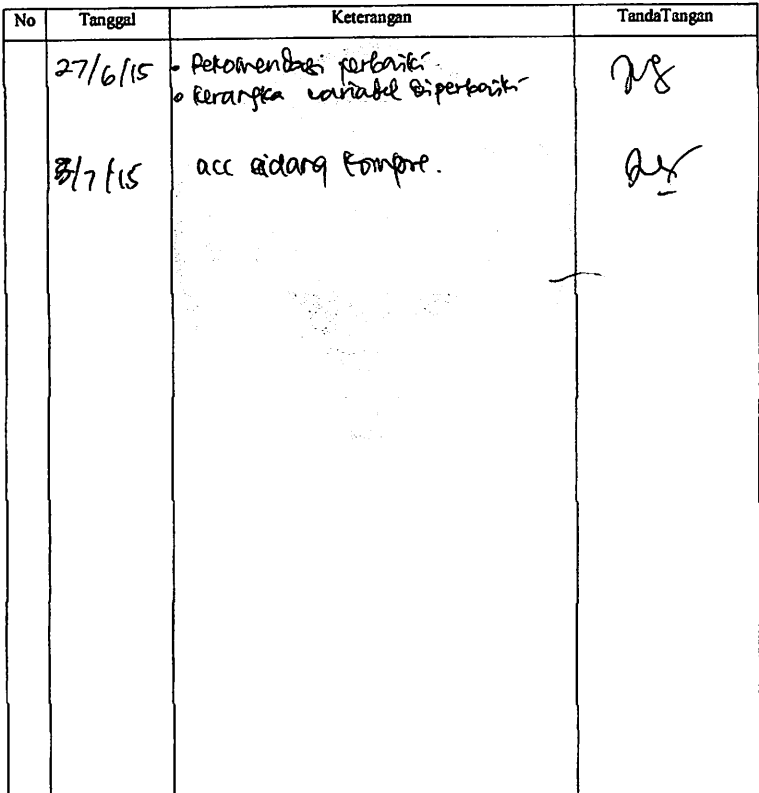 No Tanggal Keterangan TandaTangan
27/6/15 • Rekomendasi perbaiki
• Kerangka variabel diperbaiki
3/7/15 acc sidang kompre.